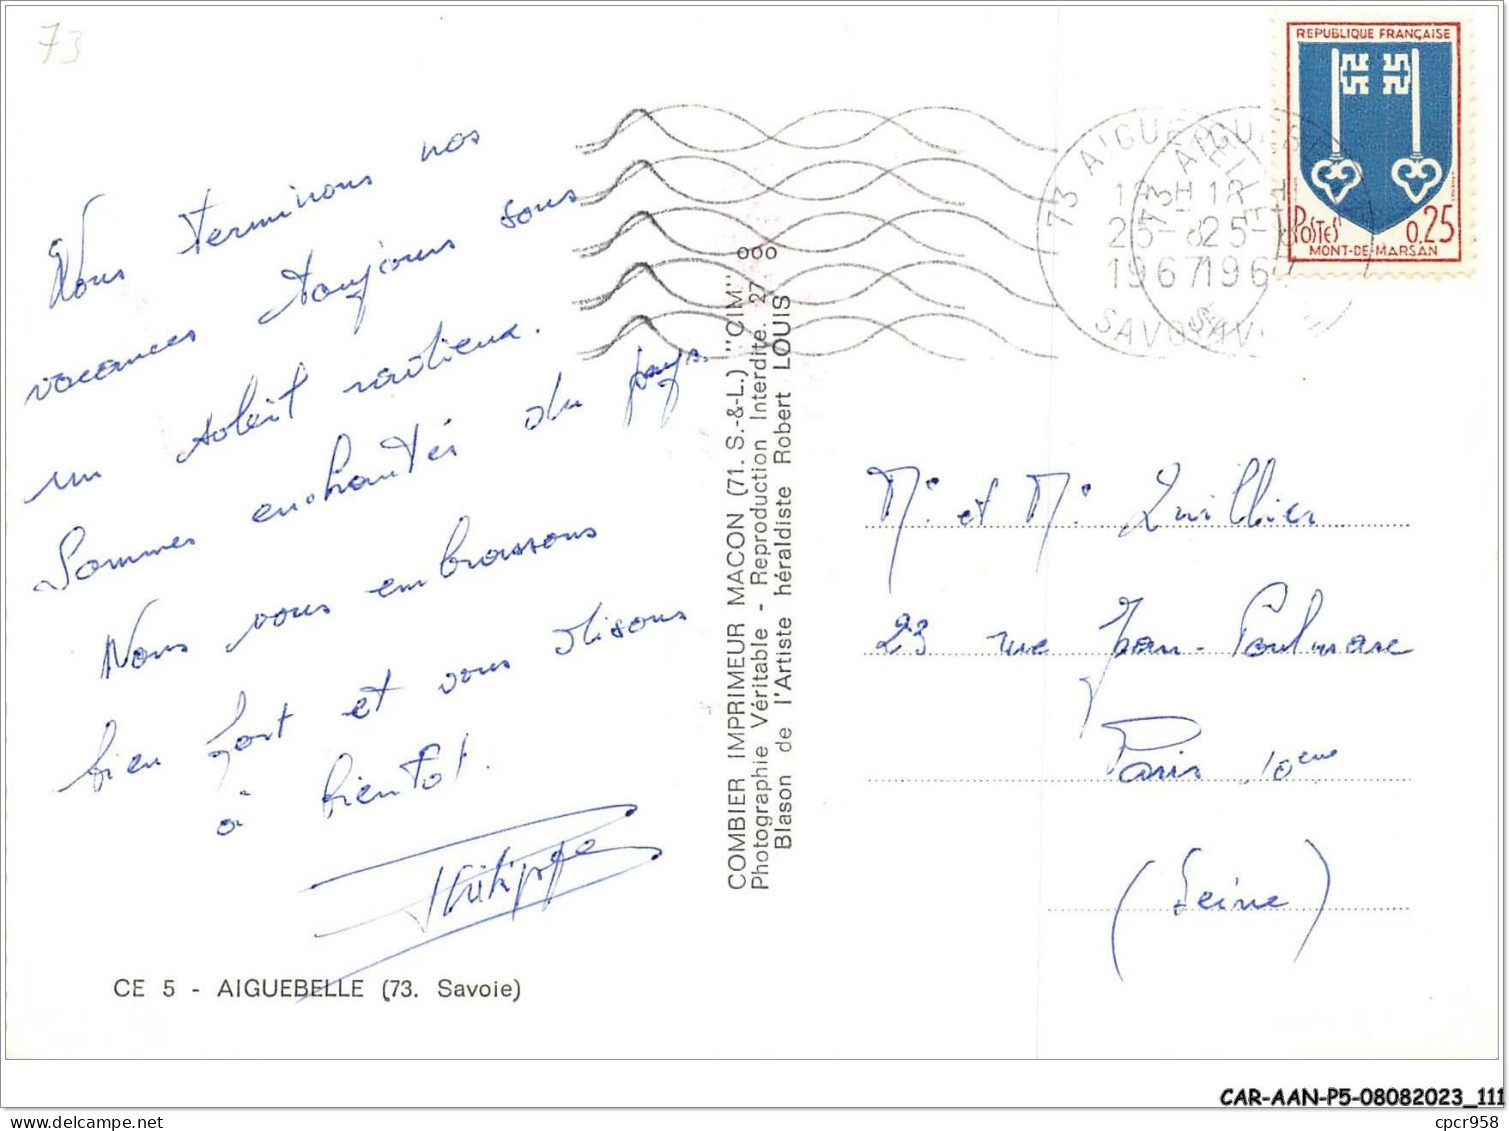 73
Nous terminons nos
vacances toujours sous
un soleil radieux.
Sommes enchantés du pays.
Nous vous embrassons
bien fort et vous disons
à bientot.
Philippe
CE 5 - AIGUEBELLE (73. Savoie)
COMBIER IMPRIMEUR MACON (71. S.-&-L.) "CIM"
Photographie Véritable - Reproduction Interdite. 27 ooo
Blason de l'Artiste héraldiste Robert LOUIS
73 AIGUEBELLE
18H
25-8
1967
SAVOIE
REPUBLIQUE FRANÇAISE
POSTES 0,25
MONT-DE-MARSAN
Mr et Mr Quillier
23 rue Jean-Poulmarc
Paris 10eme
(Seine)
CAR-AAN-P5-08082023_111
cpcr958